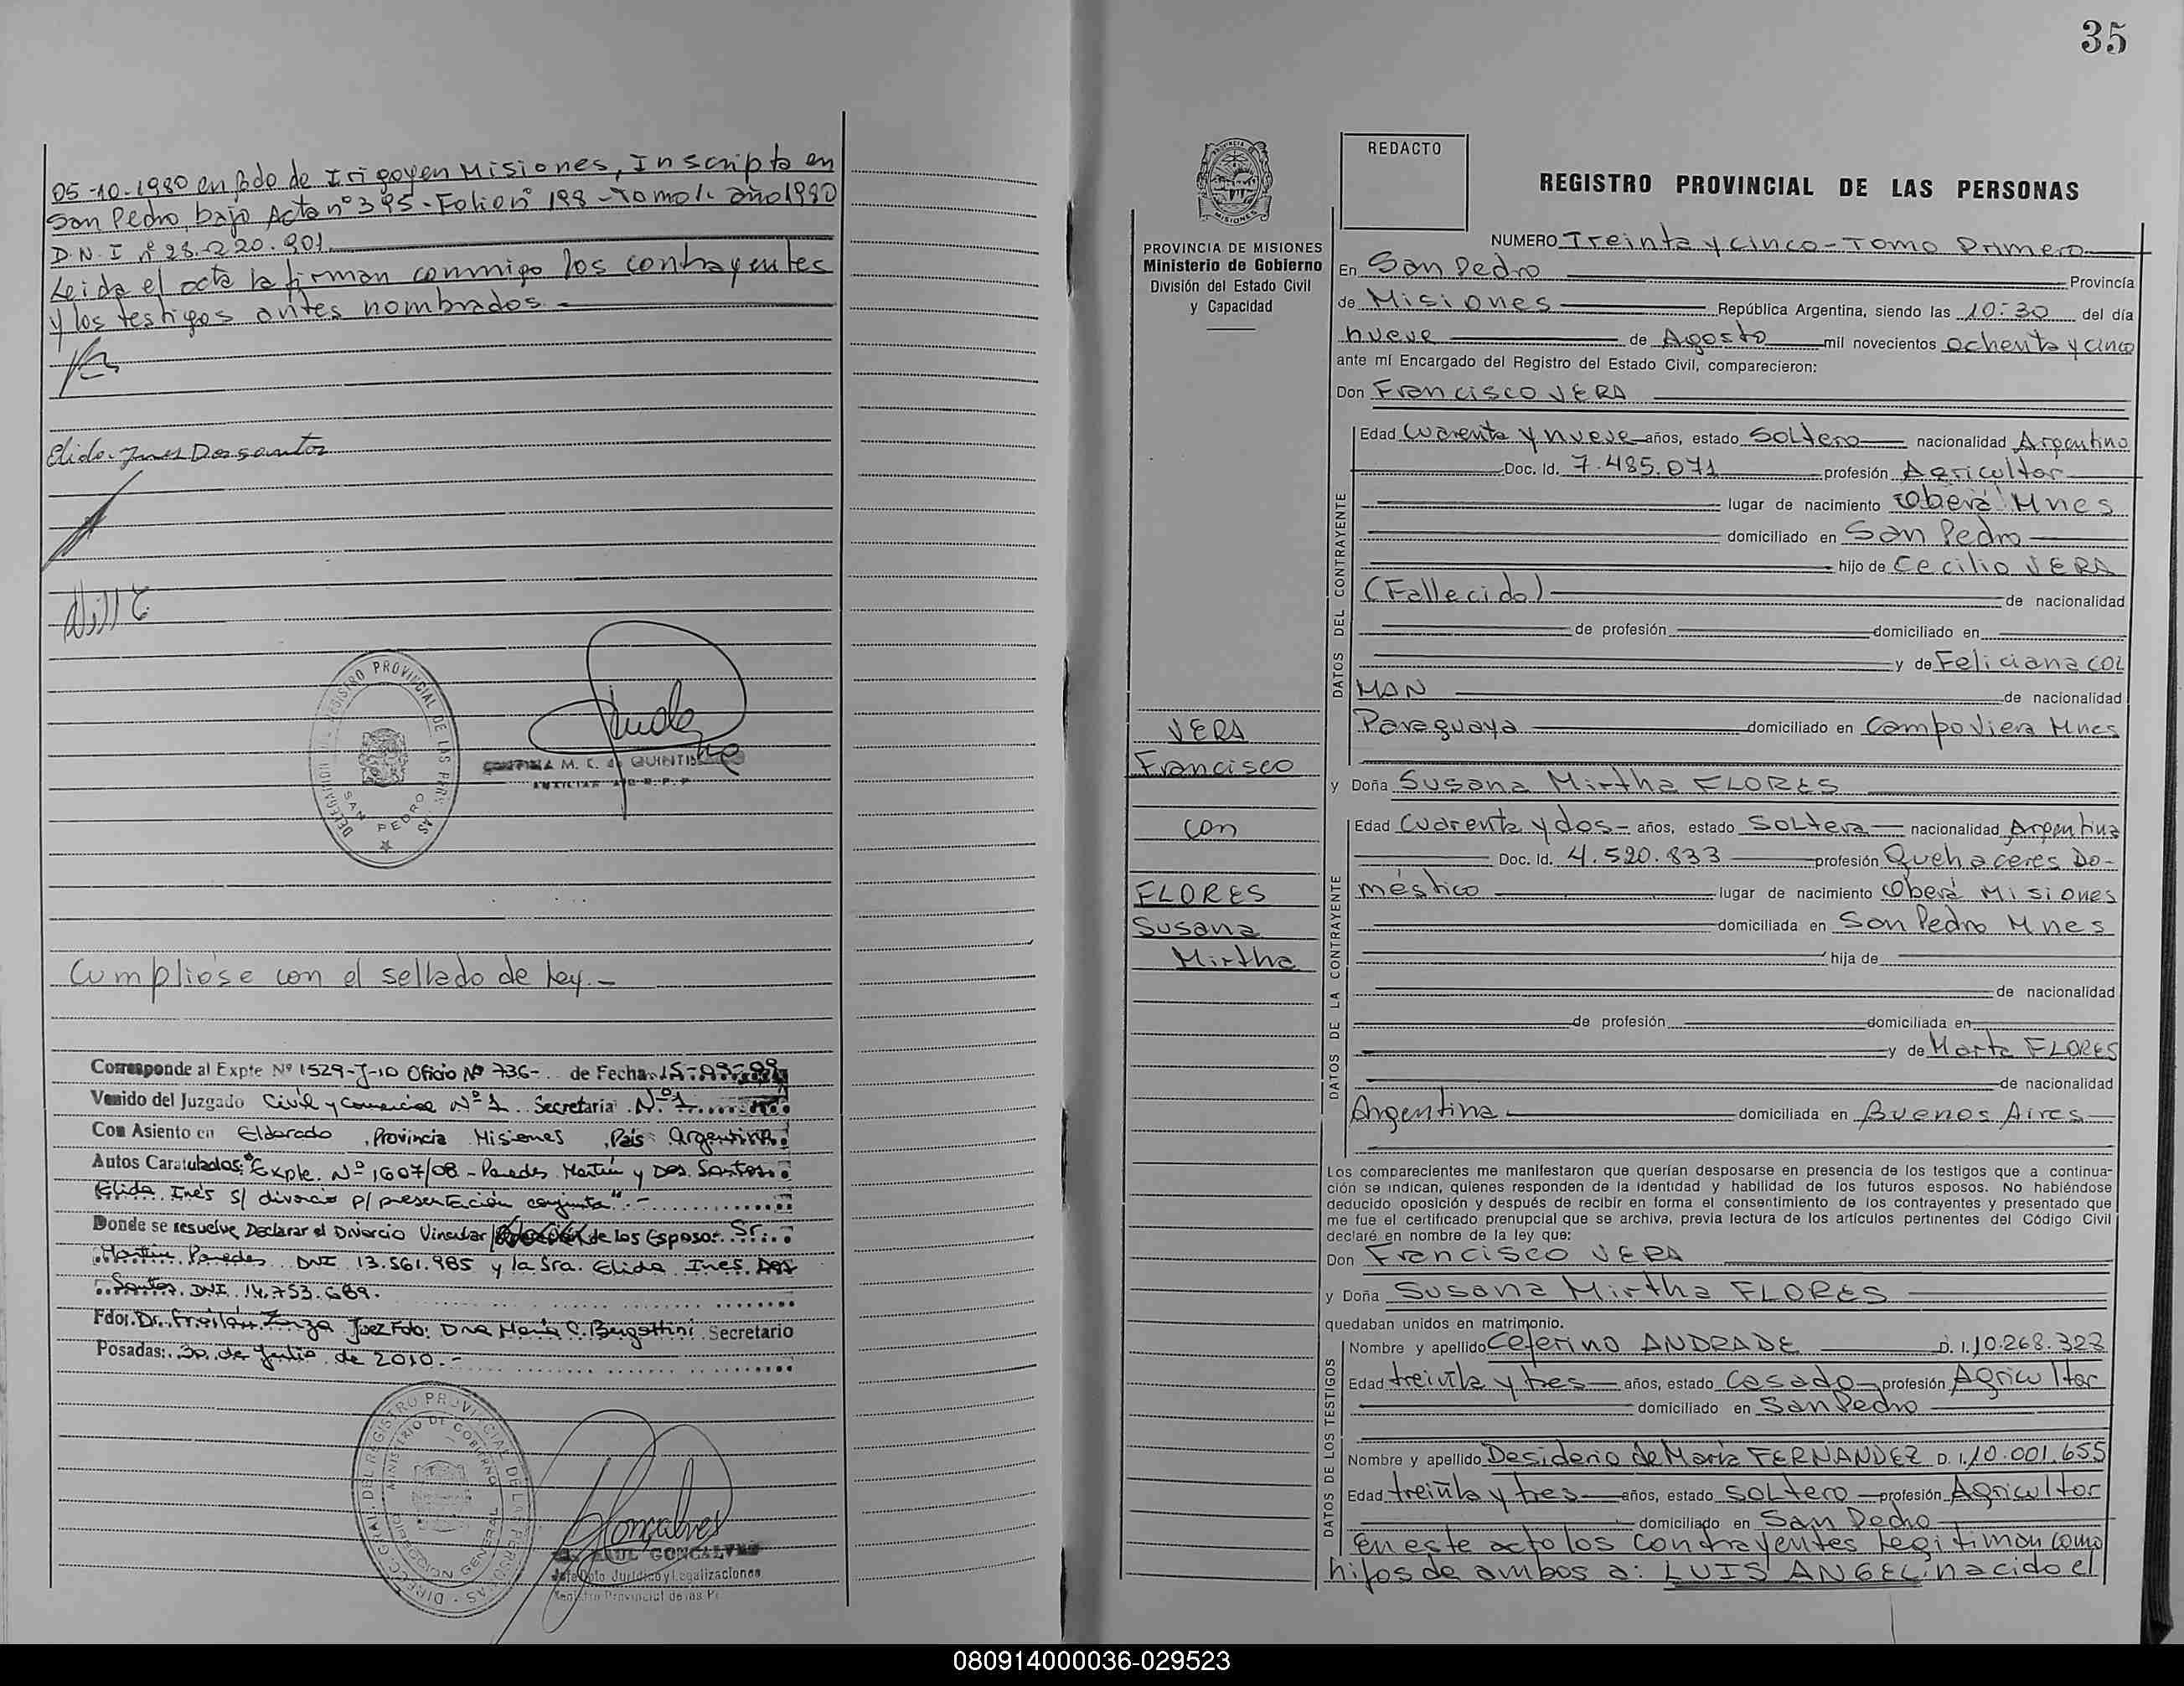 05-10-1980 en fado de Irigoyen Misiones, Inscripta en
San Pedro, bajo Acta nº 395-Folio nº 198-Tomo 1. año 1980
D.N.I nº 28.220.901
Leida el acta la firman conmigo los contrayentes
y los testigos antes nombrados.-
Elida Ines Dos santos
DELEGACION DEL REGISTRO PROVINCIAL DE LAS PERSONAS
SAN PEDRO
M. K. de QUINTI
AUXILIAR
Cumplióse con el sellado de Ley.-
Corresponde al Expte Nº 1529-J-10 Oficio Nº 736- de Fecha 15-09-09
Venido del Juzgado Civil y Comercial Nº 1 Secretaria Nº 1
Con Asiento en Eldorado, Provincia Misiones, País Argentina
Autos Caratulados: "Expte. Nº 1607/08 - Paredes Martin y Dos Santos
Elida Inés s/ divorcio p/ presentación conjunta".-
Donde se resuelve Declarar el Divorcio Vincular de los Esposos Sr.
Martin Paredes DNI 13.561.985 y la Sra. Elida Ines Dos
Santos. DNI 14.753.689.
Fdo: Dr. Juez Fdo: Dra María C. Bergottini Secretario
Posadas: 30 de Julio de 2010.-
DIRECC. GRAL. DEL REGISTRO PROVINCIAL DE LAS PERSONAS
MINISTERIO DE GOBIERNO
DIRECCION GENERAL
Gonçalves
RAUL GONCALVES
Jefe Dpto Jurídico y Legalizaciones
Registro Provincial de las P
35
PROVINCIA DE MISIONES
Ministerio de Gobierno
División del Estado Civil
y Capacidad
MISIONES
VERA
Francisco
con
FLORES
Susana
Mirtha
REDACTO
REGISTRO PROVINCIAL DE LAS PERSONAS
NUMERO Treinta y cinco - Tomo Primero
En San Pedro Provincia
de Misiones República Argentina, siendo las 10:30 del día
nueve de Agosto mil novecientos ochenta y cinco
ante mí Encargado del Registro del Estado Civil, comparecieron:
Don Francisco VERA
DATOS DEL CONTRAYENTE
Edad Cuarenta y nueve años, estado Soltero nacionalidad Argentino
Doc. Id. 7.485.071 profesión Agricultor
lugar de nacimiento Oberá Mnes
domiciliado en San Pedro
hijo de Cecilio VERA
(Fallecido) de nacionalidad
de profesión domiciliado en
y de Feliciana COL
MAN de nacionalidad
Paraguaya domiciliado en Campo Viera Mnes
y Doña Susana Mirtha FLORES
DATOS DE LA CONTRAYENTE
Edad Cuarenta y dos- años, estado Soltera nacionalidad Argentina
Doc. Id. 4.520.833 profesión Quehaceres Do-
méstico lugar de nacimiento Oberá Misiones
domiciliada en San Pedro Mnes
hija de
de nacionalidad
de profesión domiciliada en
y de Marta FLORES
de nacionalidad
Argentina domiciliada en Buenos Aires
Los comparecientes me manifestaron que querían desposarse en presencia de los testigos que a continua-
ción se indican, quienes responden de la identidad y habilidad de los futuros esposos. No habiéndose
deducido oposición y después de recibir en forma el consentimiento de los contrayentes y presentado que
me fue el certificado prenupcial que se archiva, previa lectura de los artículos pertinentes del Código Civil
declaré en nombre de la ley que:
Don Francisco VERA
y Doña Susana Mirtha FLORES
quedaban unidos en matrimonio.
DATOS DE LOS TESTIGOS
Nombre y apellido Ceferino ANDRADE D. I. 10.268.323
Edad treinta y tres años, estado Casado profesión Agricultor
domiciliado en San Pedro
Nombre y apellido Desiderio de María FERNANDEZ D. I. 10.001.655
Edad treinta y tres años, estado Soltero profesión Agricultor
domiciliado en San Pedro
En este acto los contrayentes legitiman como
hijos de ambos a: LUIS ANGEL: nacido el
080914000036-029523